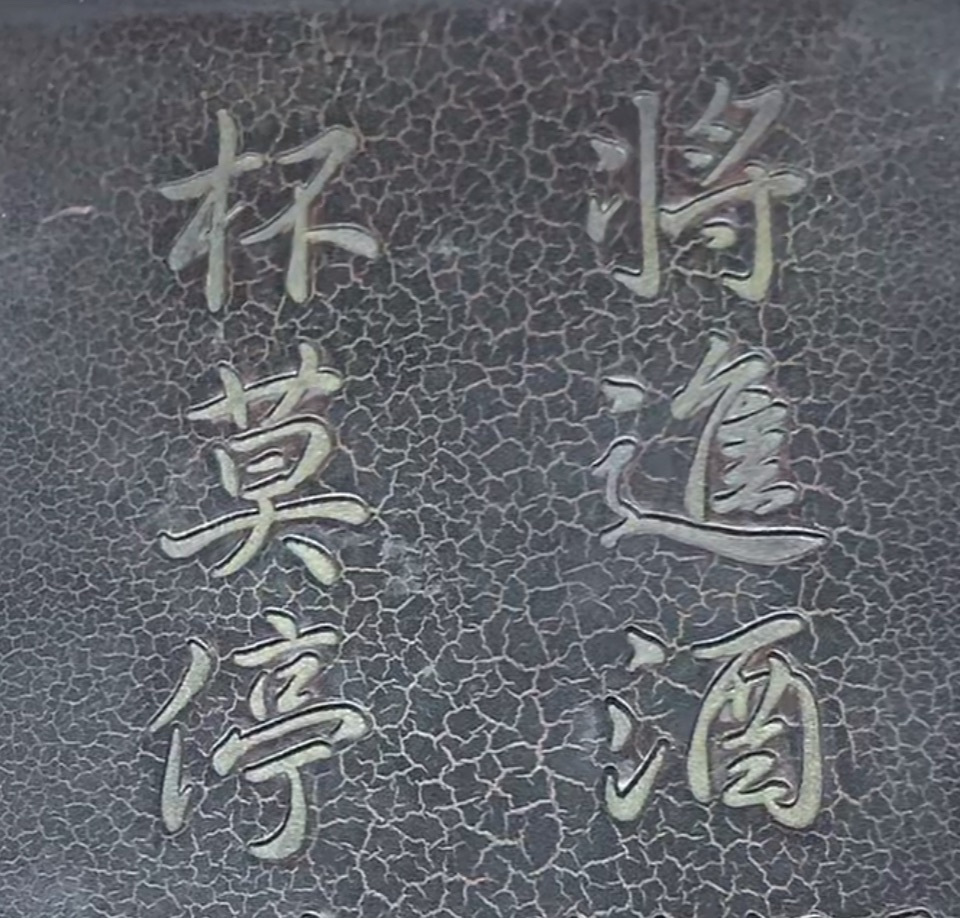 將進酒
杯莫停